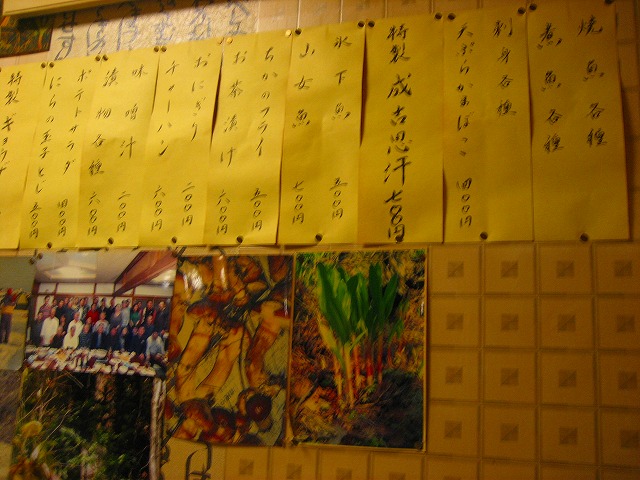 焼魚各種
煮魚各種
刺身各種
天ぷらかまぼこ 四〇〇円
特製成吉思汗 七〇〇円
氷下魚 五〇〇円
山女魚 七〇〇円
ちかのフライ 五〇〇円
お茶漬け 六〇〇円
おにぎり 二〇〇円
チャーハン 六〇〇円
味噌汁 二〇〇円
漬物各種 六〇〇円
ポテトサラダ 四〇〇円
にらの玉子とじ 五〇〇円
特製ギョウザ